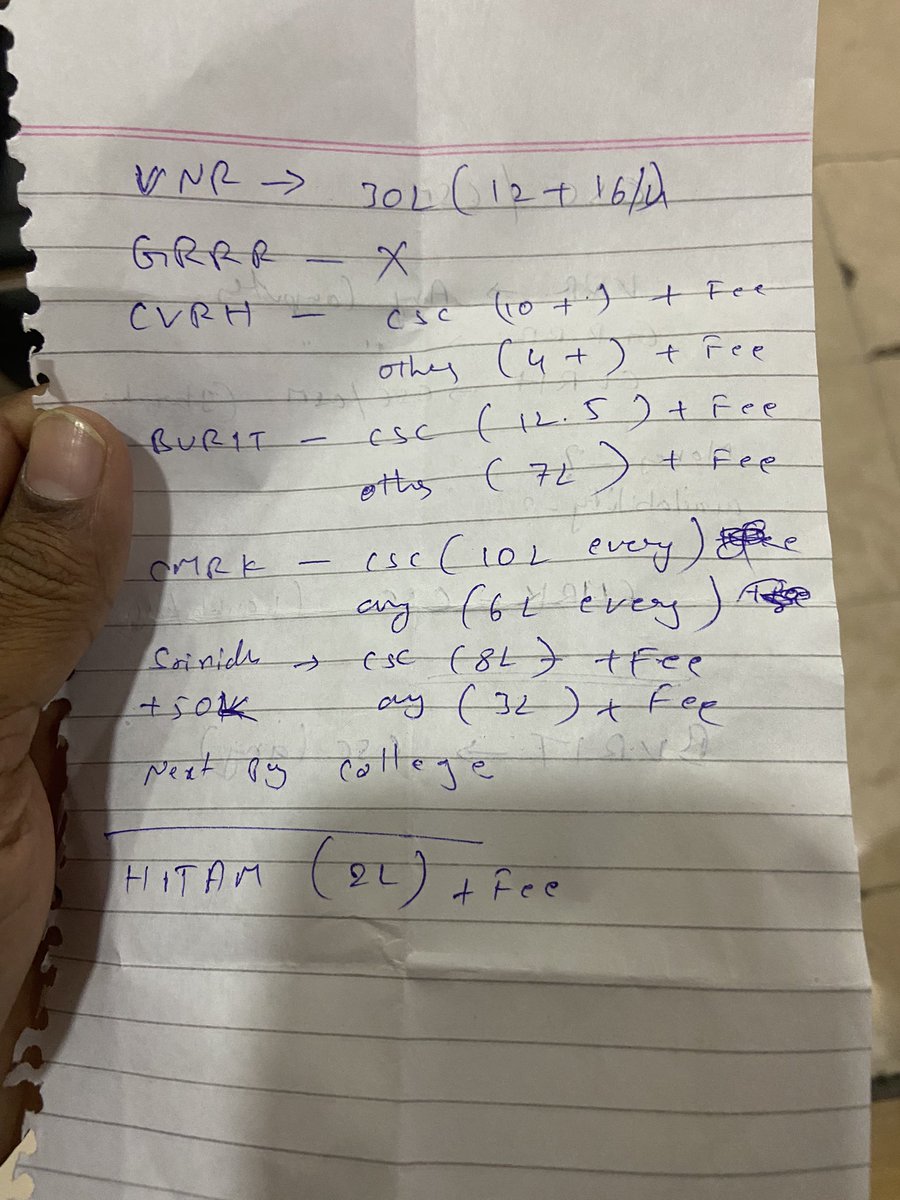 VNR → 30L (12 + 16/
GRRR — X
CVRH — csc (10 + ) + Fee
othes (4 + ) + Fee
BVRIT — csc (12.5) + Fee
othes (7L) + Fee
CMRK — csc (10L every)
any (6L every)
Srinidh → csc (8L) + Fee
+50K any (3L) + Fee
Next By college
HITAM (2L) + Fee